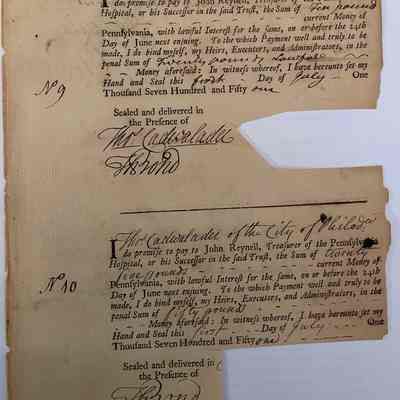 do promise to pay to John Reynell, Treasurer of the Pennsylvania
Hospital, or his Successor in the said Trust, the Sum of Ten pound
current Money of
Pennsylvania, with lawful Interest for the same, on or before the 24th
Day of June next ensuing. To the which Payment well and truly to be
made, I do bind myself, my Heirs, Executors, and Administrators, in the
penal Sum of Twenty pounds Lawful
Money aforesaid: In witness whereof, I have hereunto set my
Hand and Seal this first Day of July One
Thousand Seven Hundred and Fifty one
No 9
Sealed and delivered in
the Presence of
Thos Cadwalader
Th Bond
I Thos Cadwalader of the City of Philada
do promise to pay to John Reynell, Treasurer of the Pennsylvania
Hospital, or his Successor in the said Trust, the Sum of twenty
five pounds current Money of
Pennsylvania, with lawful Interest for the same, on or before the 24th
Day of June next ensuing. To the which Payment well and truly to be
made, I do bind myself, my Heirs, Executors, and Administrators, in the
penal Sum of fifty pounds
Money aforesaid: In witness whereof, I have hereunto set my
Hand and Seal this first Day of July One
Thousand Seven Hundred and Fifty one
No 10
Sealed and delivered in
the Presence of
Th Bond